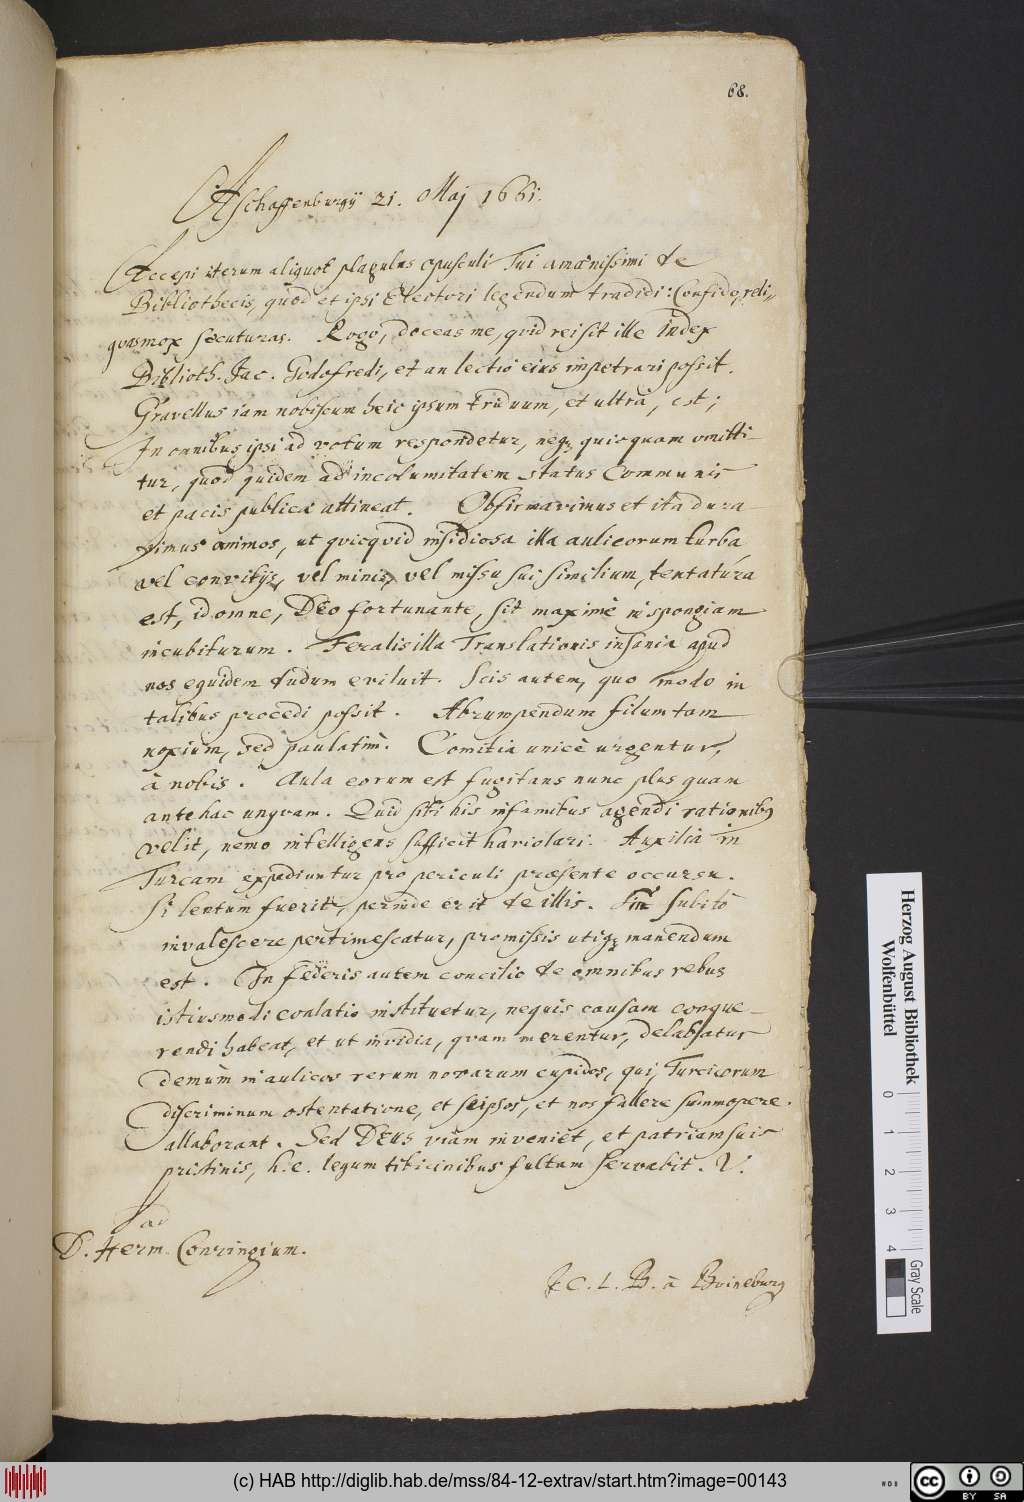 68.
Aschaffenburgij 21. Maj 1661.
Accepi iterum aliquot plagulas opusculi Tui amœnissimi de
Bibliothecis, quod et ipsi Electori legendum tradidi: Confido, reli-
quas mox secuturas. Rogo, doceas me, quid rei sit ille Index
Biblioth. Jac. Godofredi, et an lectio eius impetrari possit.
Gravellus iam nobiscum heic ipsum triduum, et ultra, est;
In omnibus ipsi ad votum respondetur, neq; quicquam omitti-
tur, quod quidem ad incolumitatem status Communis
et pacis publicæ attineat. Obfirmavimus et ita dura-
vimus animos, ut quicquid insidiosa illa aulicorum turba
vel convitijs, vel minis, vel missu sui similium, tentatura
est, id omne, Deo fortunante, sit maximè in spongiam
incubiturum. Feralis illa Translationis insania apud
nos equidem dudum eviluit. Scis autem, quo modo in
talibus procedi possit. Abrumpendum filum tam
noxium, sed paulatim. Comitia unicè urgentur,
à nobis. Aula eorum est fugitans nunc plus quam
antehac unquam. Quid sibi his infamibus agendi rationibq
velit, nemo intelligens sufficit hariolari. Auxilia in
Turcam expediuntur pro periculi præsente occursu.
Si lentum fuerit, perinde erit de illis. Sin subitò
invalescere pertimescatur, promissis utiq; manendum
est. In fœderis autem concilio de omnibus rebus
istiusmodi conlatio instituetur, nequis causam conque-
rendi habeat, et ut invidia, quam merentur, delabatur
demùm in aulicos rerum novarum cupidos, qui, Turcicorum
discriminum ostentatione, et seipsos, et nos fallere summopere
allaborant. Sed DEUS viam inveniet, et patriam suis
pristinis, h. e. legum tibicinibus fultam servabit. V.
ad
D. Herm. Conringium.
J C. L. B. à Boineburg
Herzog August Bibliothek
Wolfenbüttel
0 1 2 3 4
Gray Scale
(c) HAB http://diglib.hab.de/mss/84-12-extrav/start.htm?image=00143
cc BY SA